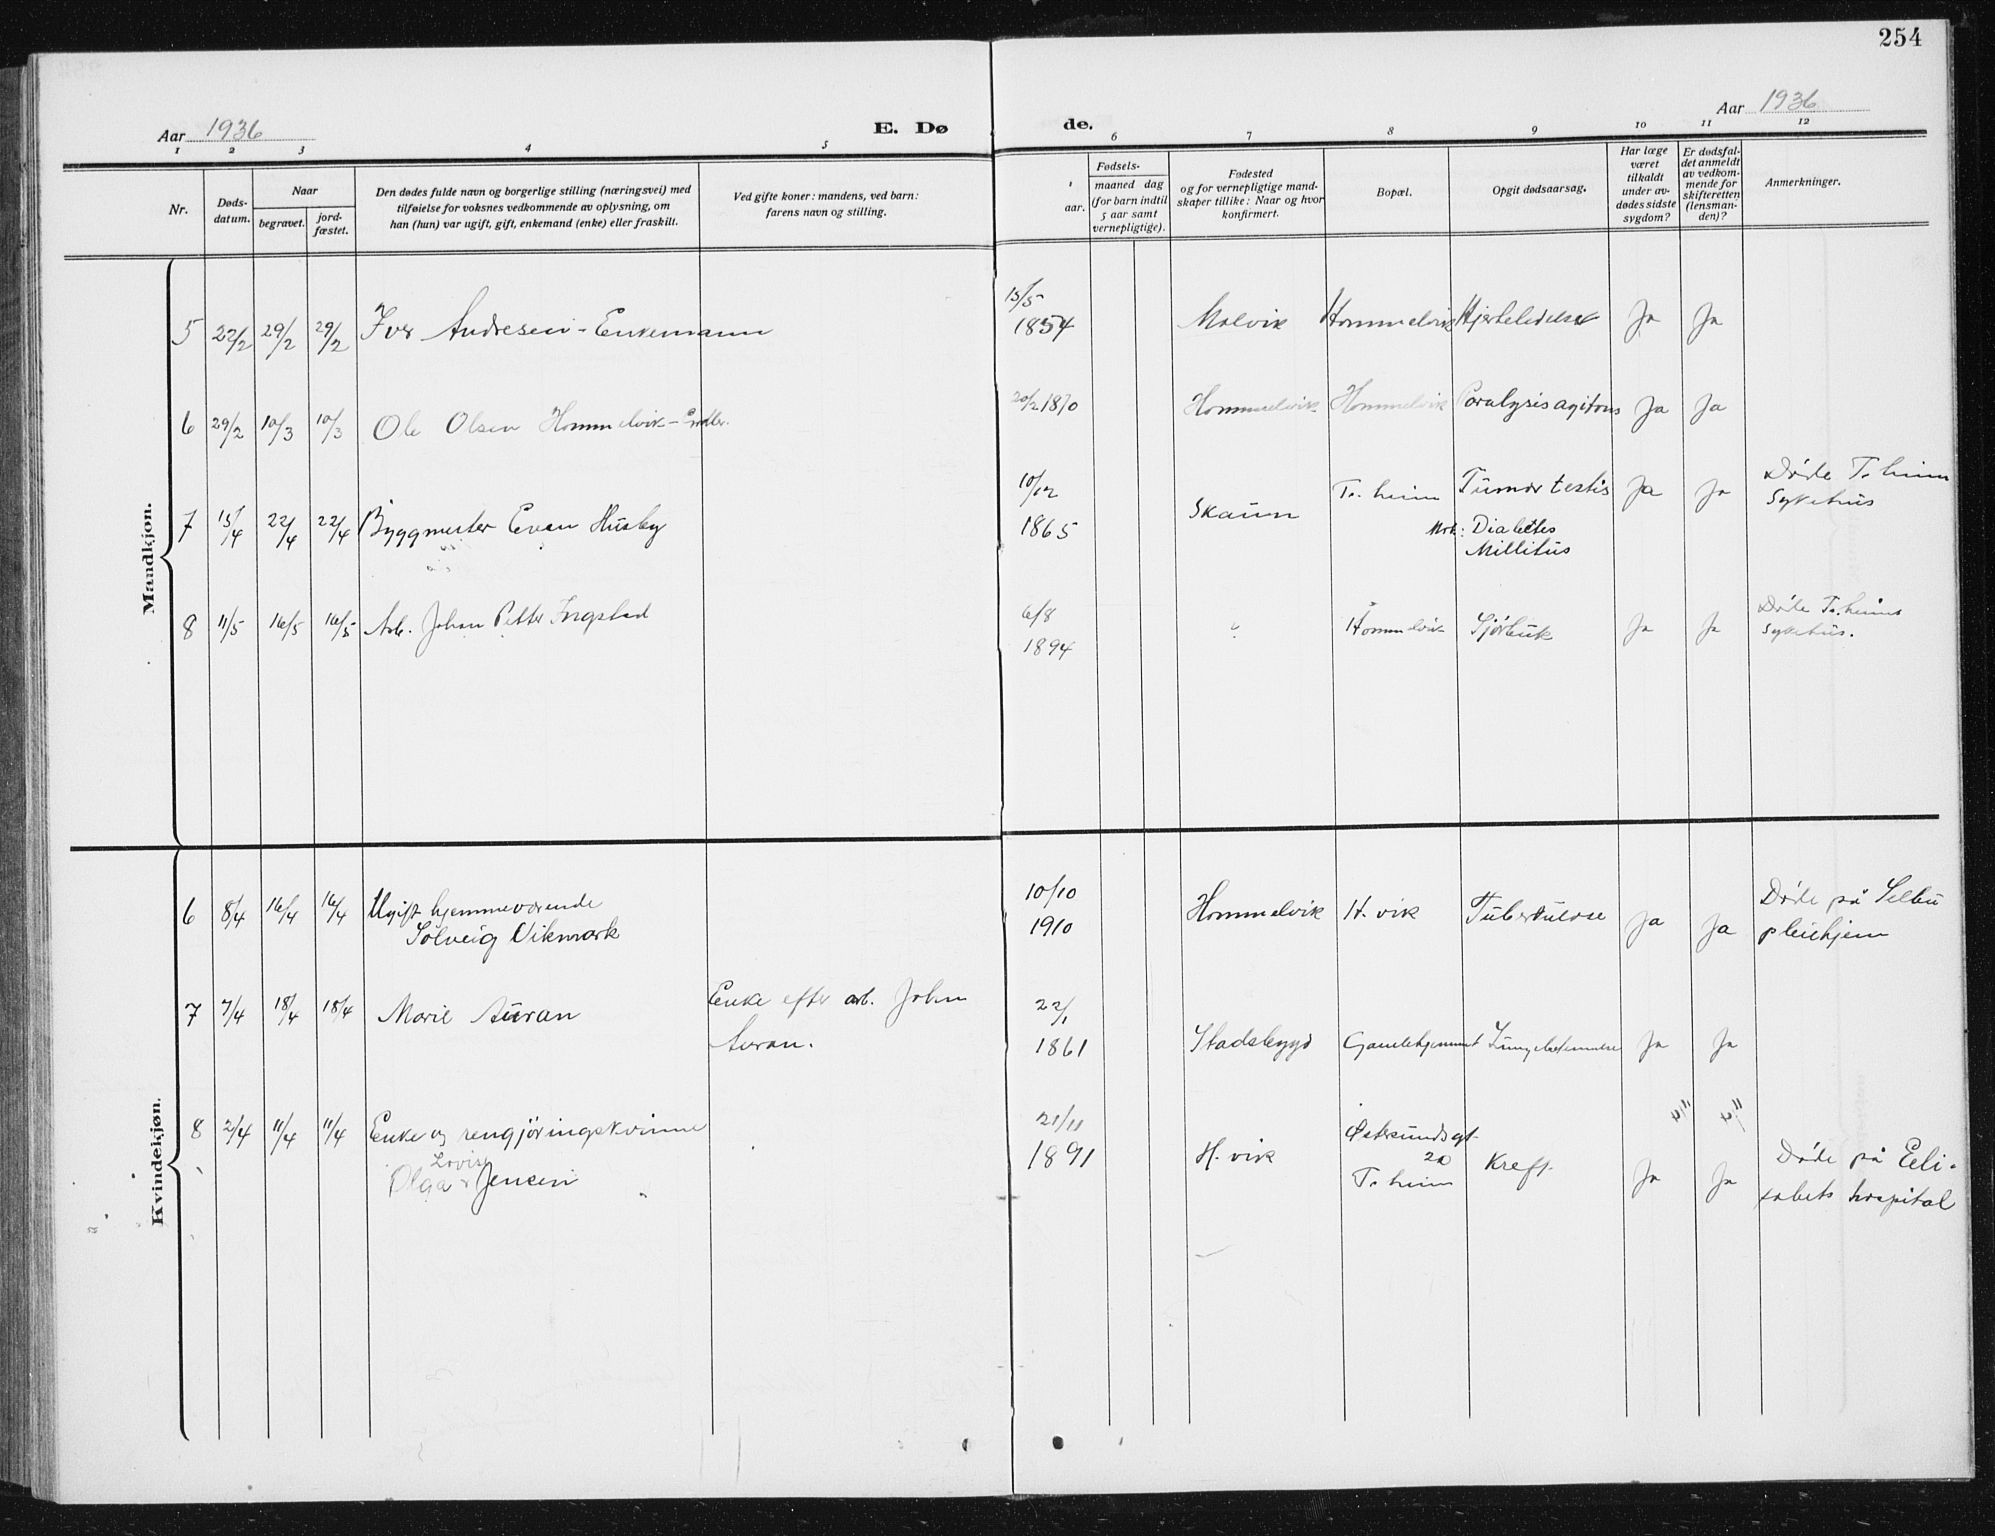 254
Aar 1936
E. Dø
de.
Aar 1936
1 2 3 4 5 6 7 8 9 10 11 12
Nr.
Døds-
datum.
Naar
begravet.
jord-
fæstet.
Den dødes fulde navn og borgerlige stilling (næringsvei) med
tilføielse for voksnes vedkommende av oplysning, om
han (hun) var ugift, gift, enkemand (enke) eller fraskilt.
Ved gifte koner: mandens, ved barn:
farens navn og stilling.
Fødsels-
aar.
maaned dag
(for barn indtil
5 aar samt
vernepligtige).
Fødested
og for vernepligtige mand-
skaper tillike: Naar og hvor
konfirmert.
Bopæl.
Opgit dødsaarsag.
Har læge
været
tilkaldt
under av-
dødes sidste
sygdom?
Er dødsfal-
det anmeldt
av vedkom-
mende for
skifteretten
(lensman-
den)?
Anmerkninger.
Mandkjøn.
5 22/2 29/2 29/2 Iver Andresen - Enkemann 15/5
1854 Malvik Hommelvik Hjertelidelse Ja Ja
6 29/2 10/3 10/3 Ole Olsen Hommelvik - 20/2 1870 Hommelvik Hommelvik Paralysis agitans Ja Ja
7 15/4 22/4 22/4 Byggmester Even Husby 10/12
1865 Skaun Tr.heim Tumor testis Ja Ja Døde Tr.heim
Sykehus
Mrk: Diabetes
Millitus
8 11/5 16/5 16/5 Arb. Johan Petter Ingstad 6/8
1894 " Hommelvik Ja Ja Døde Tr.heims
Sykehus.
Kvindekjøn.
6 8/4 16/4 16/4 Ugift hjemmeværende
Solveig Vikmark 10/10
1910 Hommelvik H.vik Tuberkulose Ja Ja Døde på Selbu
pleiehjem
7 7/4 18/4 18/4 Marie Auran Enke efter arb. Johan
Auran. 22/1
1861 Stadsbygd Gamlehjemmet Lungebetennelse Ja Ja
8 2/4 11/4 11/4 Enke og rengjøringskvinne
Lovise
Olga Jensen 21/11
1891 H.vik Østersundsgt.
20
Tr.heim Kreft Ja Ja Døde på Eeli-
sabets hospital